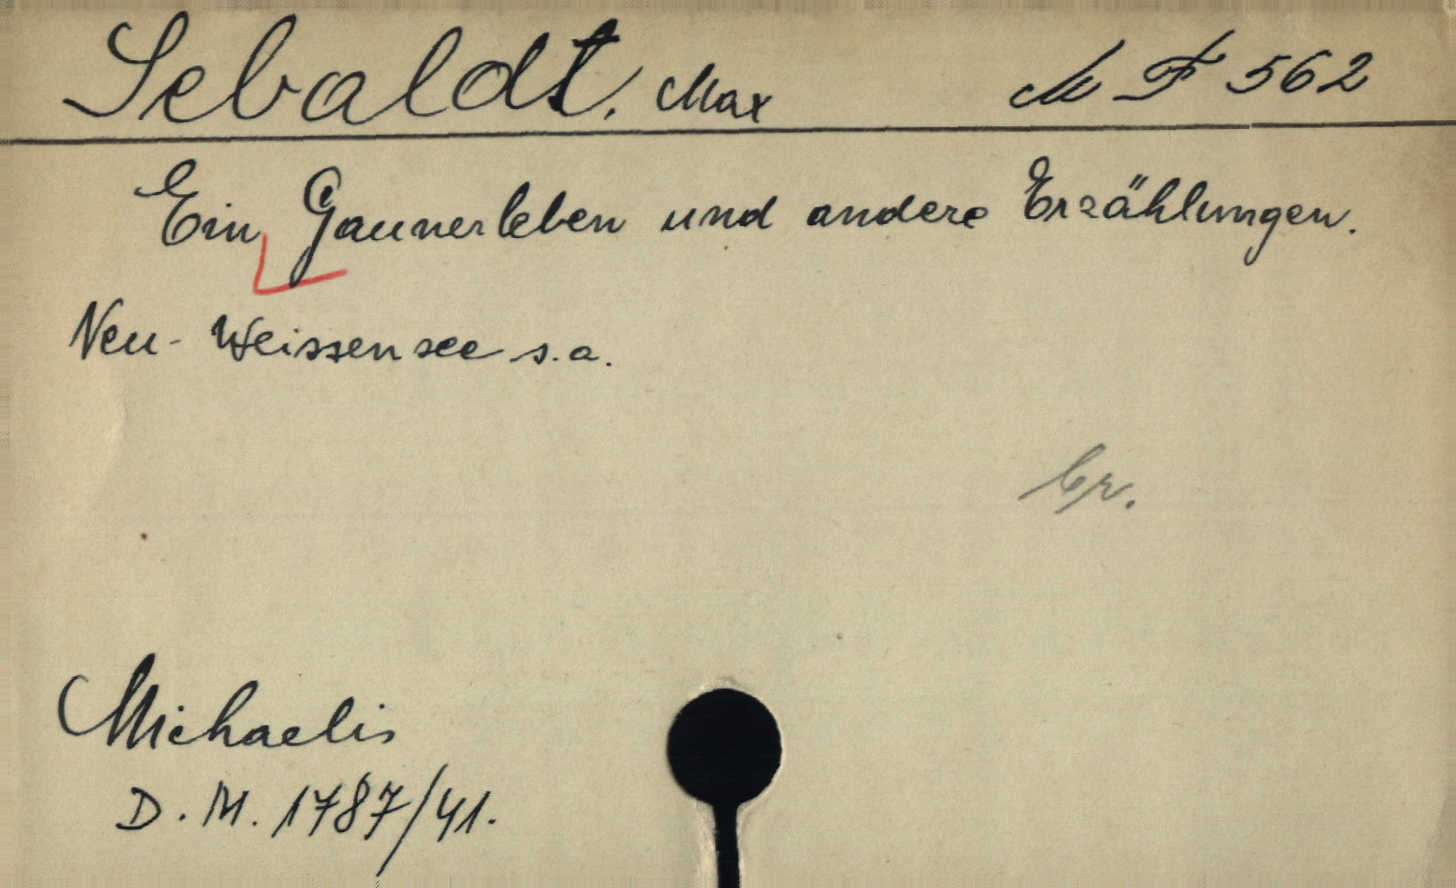 Sebaldt, Max M F 562
Ein Gaunerleben und andere Erzählungen.
Neu-Weissensee s.a.
br.
Michaelis
D.M. 1787/41.